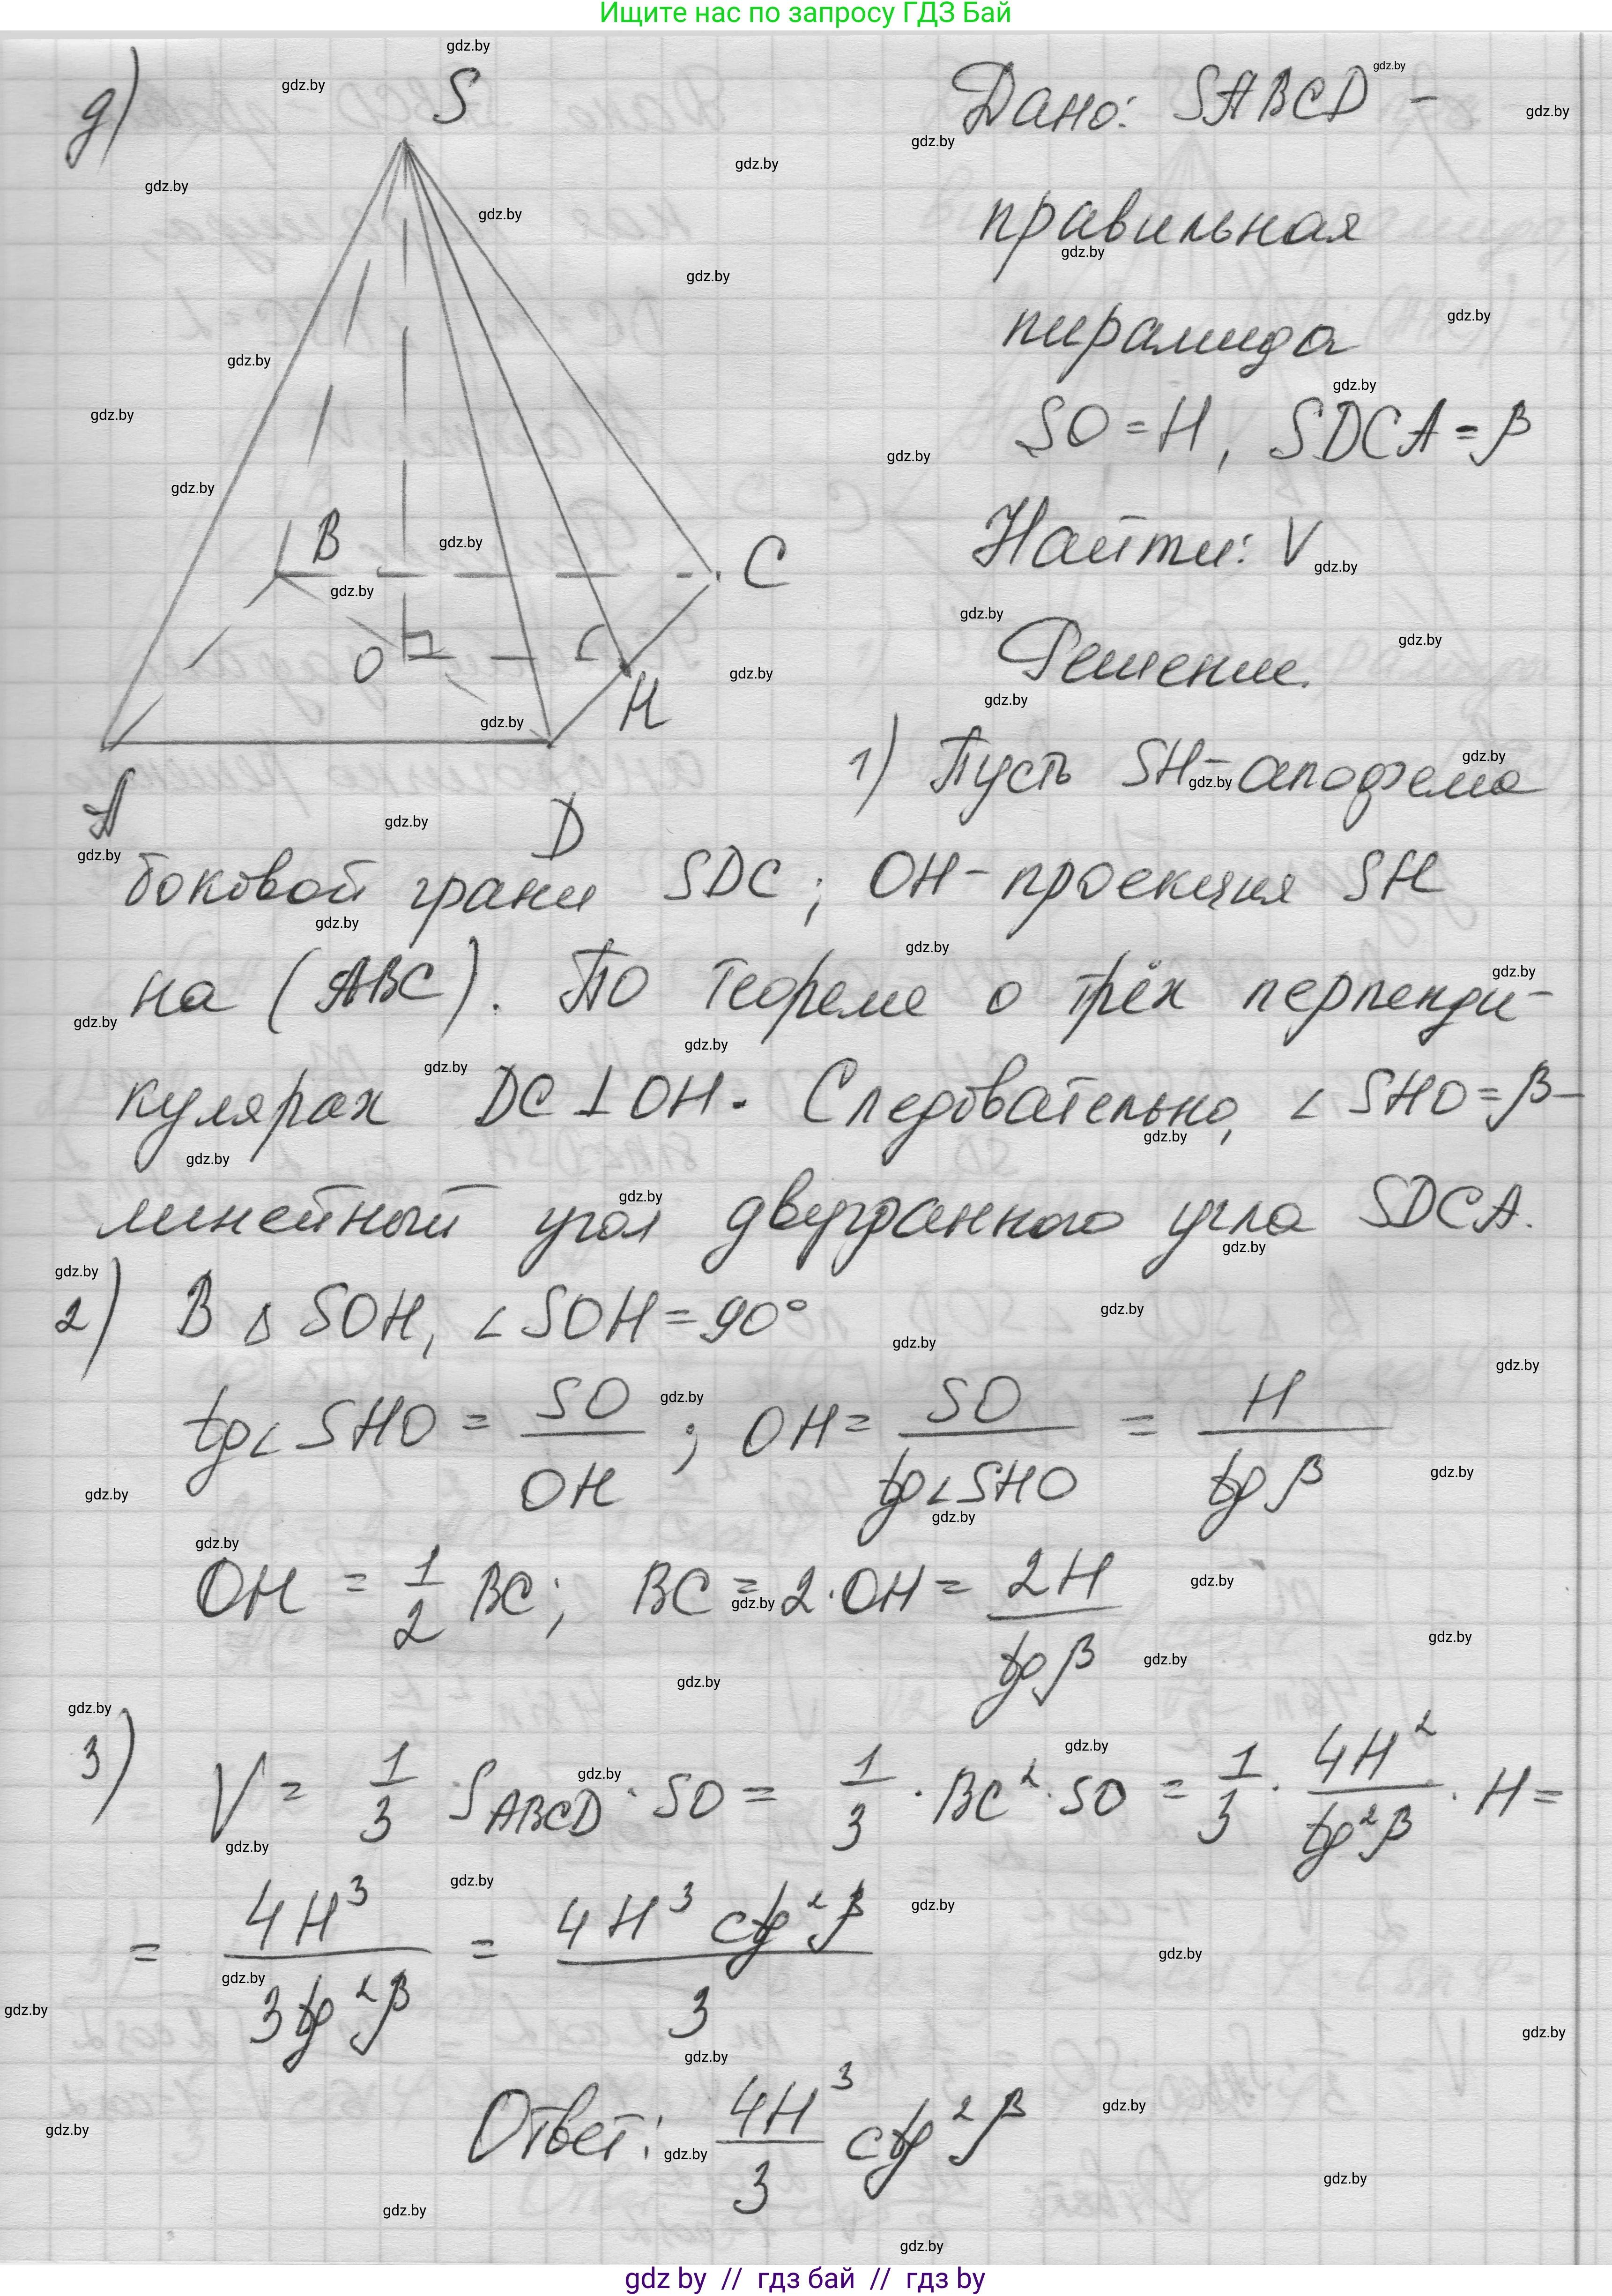 Ищите нас по запросу ГДЗ Бай
д)
S
B
C
O
H
A
D
Дано: SABCD –
правильная
пирамида
SO = H, SDCA = β
Найти: V
Решение.
1) Пусть SH – апофема
боковой грани SDC; OH – проекция SH
на (ABC). По теореме о трёх перпенди-
кулярах DC ⊥ OH. Следовательно, ∠ SHO = β –
линейный угол двугранного угла SDCA.
2) В Δ SOH, ∠ SOH = 90°
tg∠ SHO = SO/OH ; OH = SO/tg∠SHO = H/tg β
OH = 1/2 BC; BC = 2·OH = 2H/tg β
3) V = 1/3 S_ABCD · SO = 1/3 · BC² · SO = 1/3 · 4H²/tg²β · H =
= 4H³/3tg²β = 4H³ ctg²β/3
Ответ: 4H³/3 ctg²β
gdz by // гдз бай // гдз by